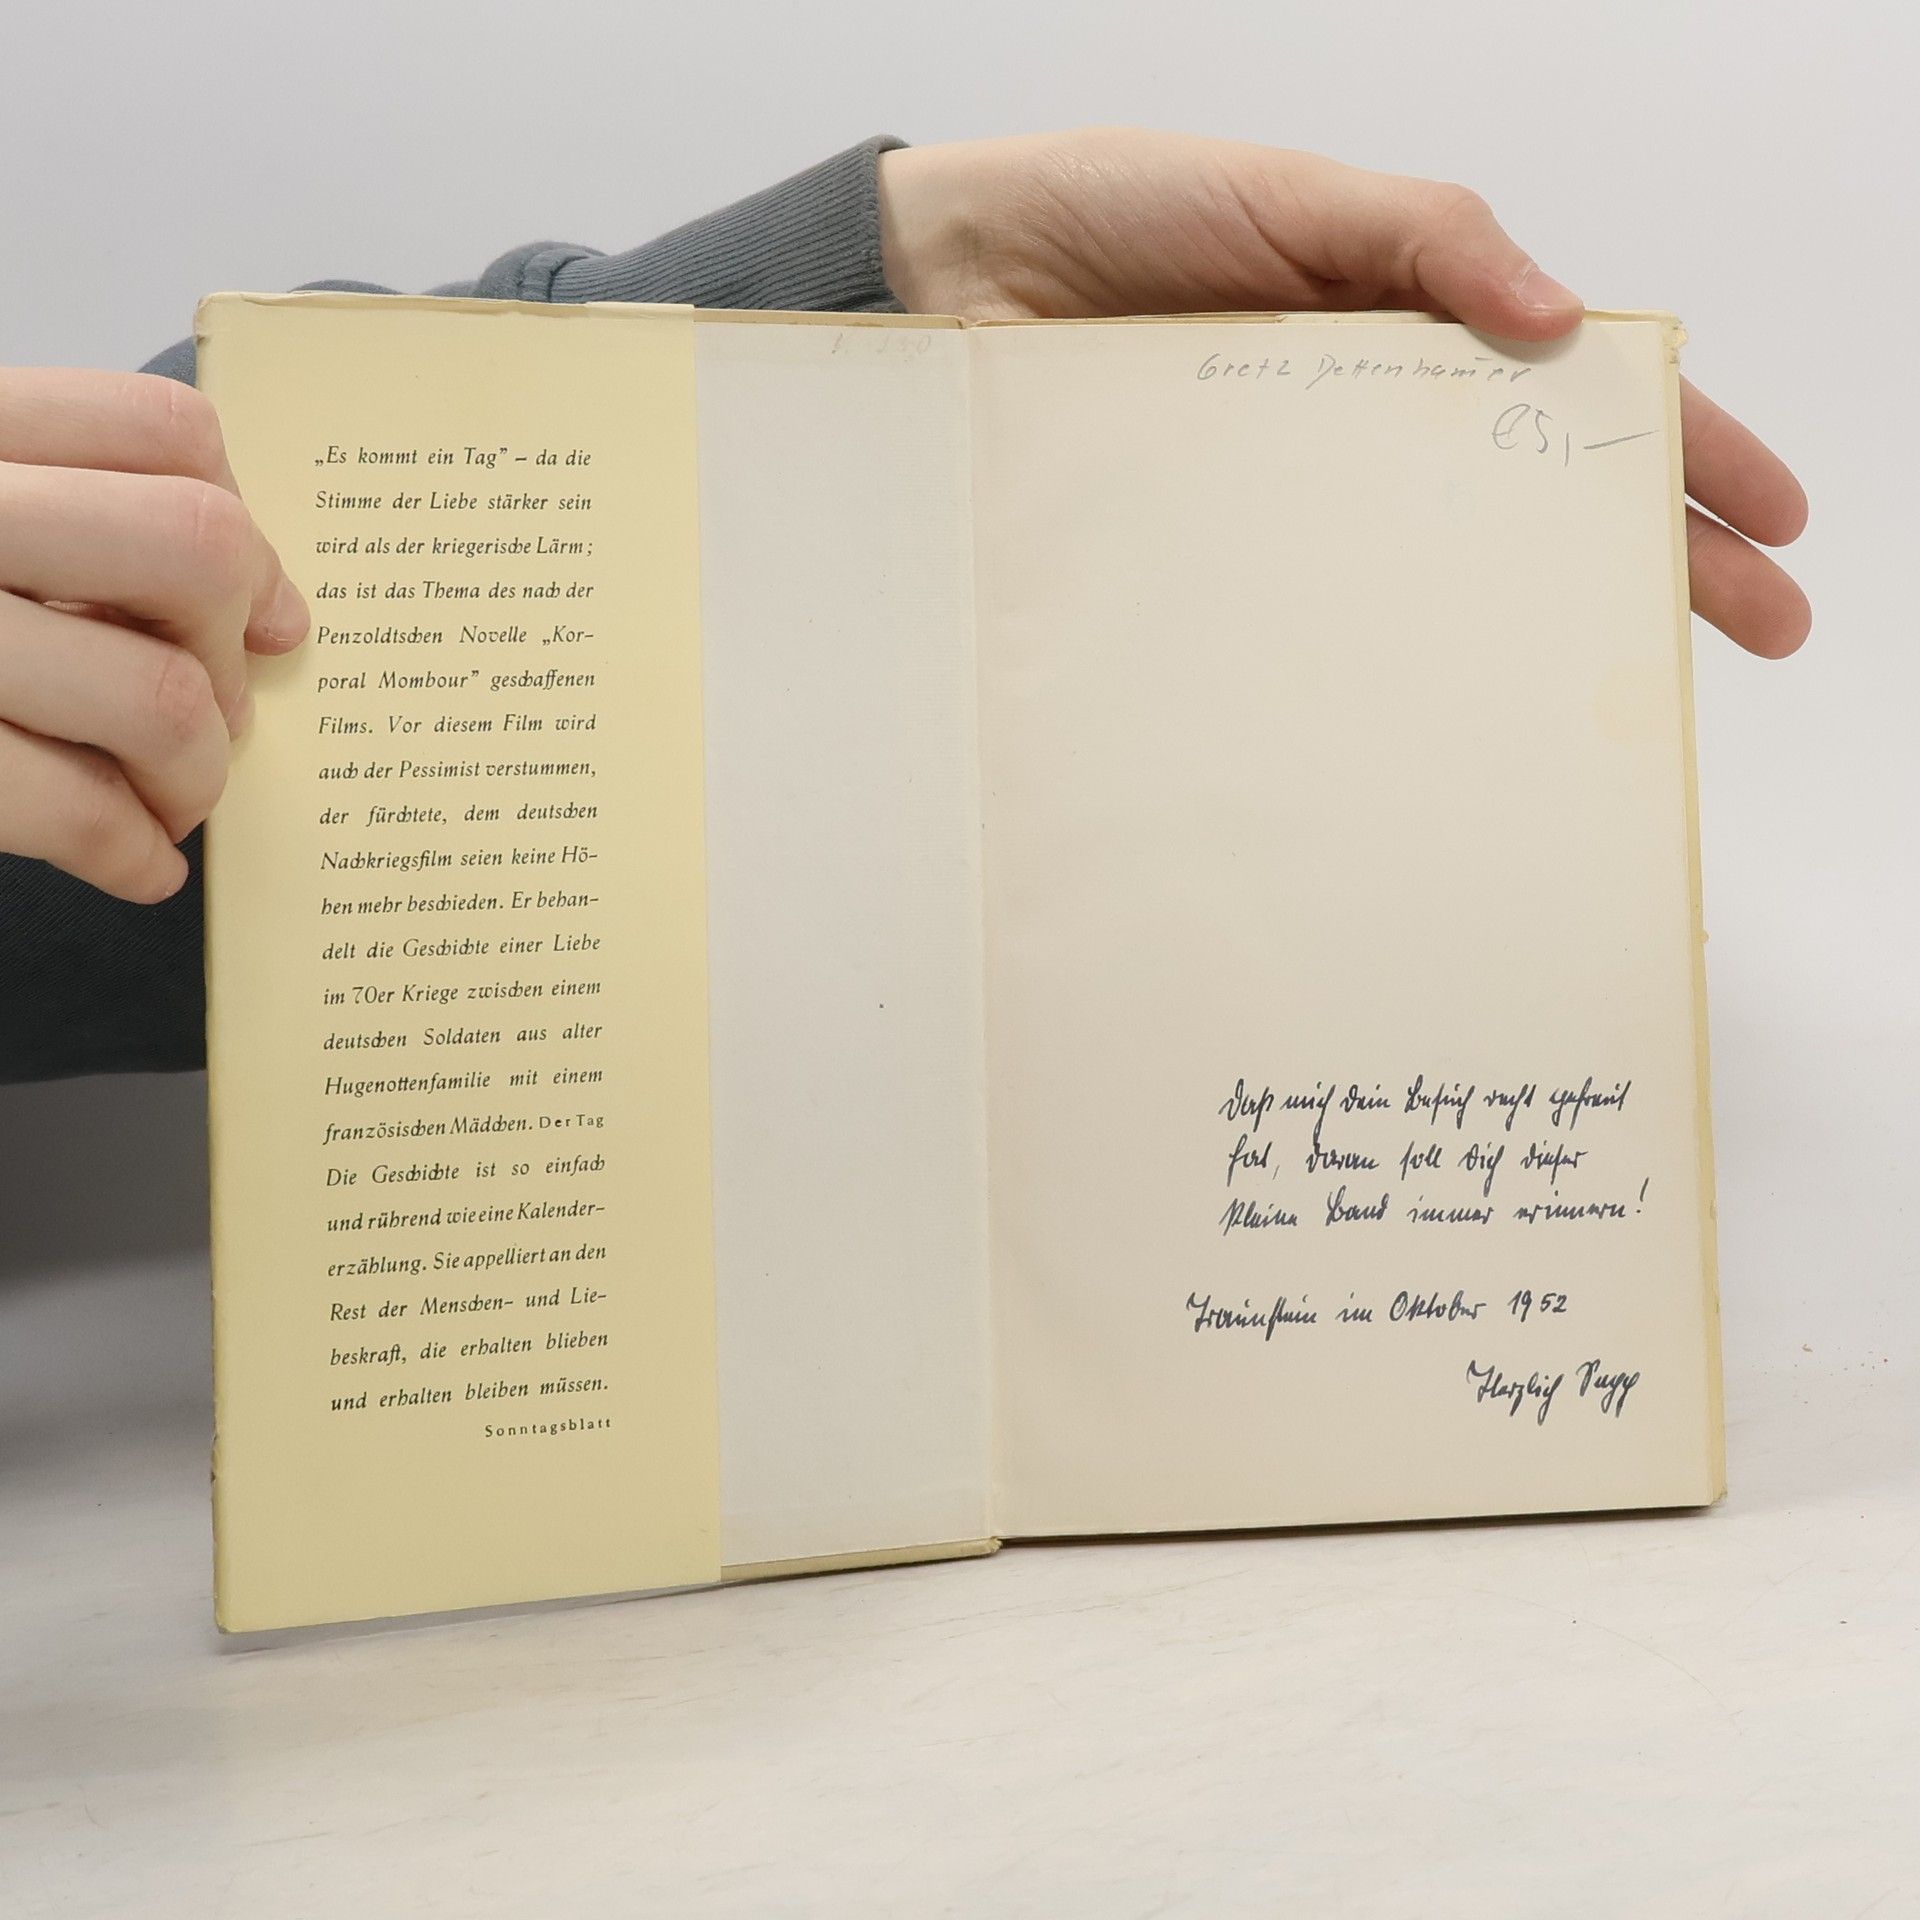 „Es kommt ein Tag” – da die
Stimme der Liebe stärker sein
wird als der kriegerische Lärm;
das ist das Thema des nach der
Penzoldtschen Novelle „Kor-
poral Mombour” geschaffenen
Films. Vor diesem Film wird
auch der Pessimist verstummen,
der fürchtete, dem deutschen
Nachkriegsfilm seien keine Hö-
hen mehr beschieden. Er behan-
delt die Geschichte einer Liebe
im 70er Kriege zwischen einem
deutschen Soldaten aus alter
Hugenottenfamilie mit einem
französischen Mädchen. Der Tag
Die Geschichte ist so einfach
und rührend wie eine Kalender-
erzählung. Sie appelliert an den
Rest der Menschen- und Lie-
beskraft, die erhalten blieben
und erhalten bleiben müssen.
Sonntagsblatt
€5,—
Daß mich dein Besuch recht gefreut
hat, daran soll dich dieser
kleine Band immer erinnern!
Traunstein im Oktober 1952
Herzlich